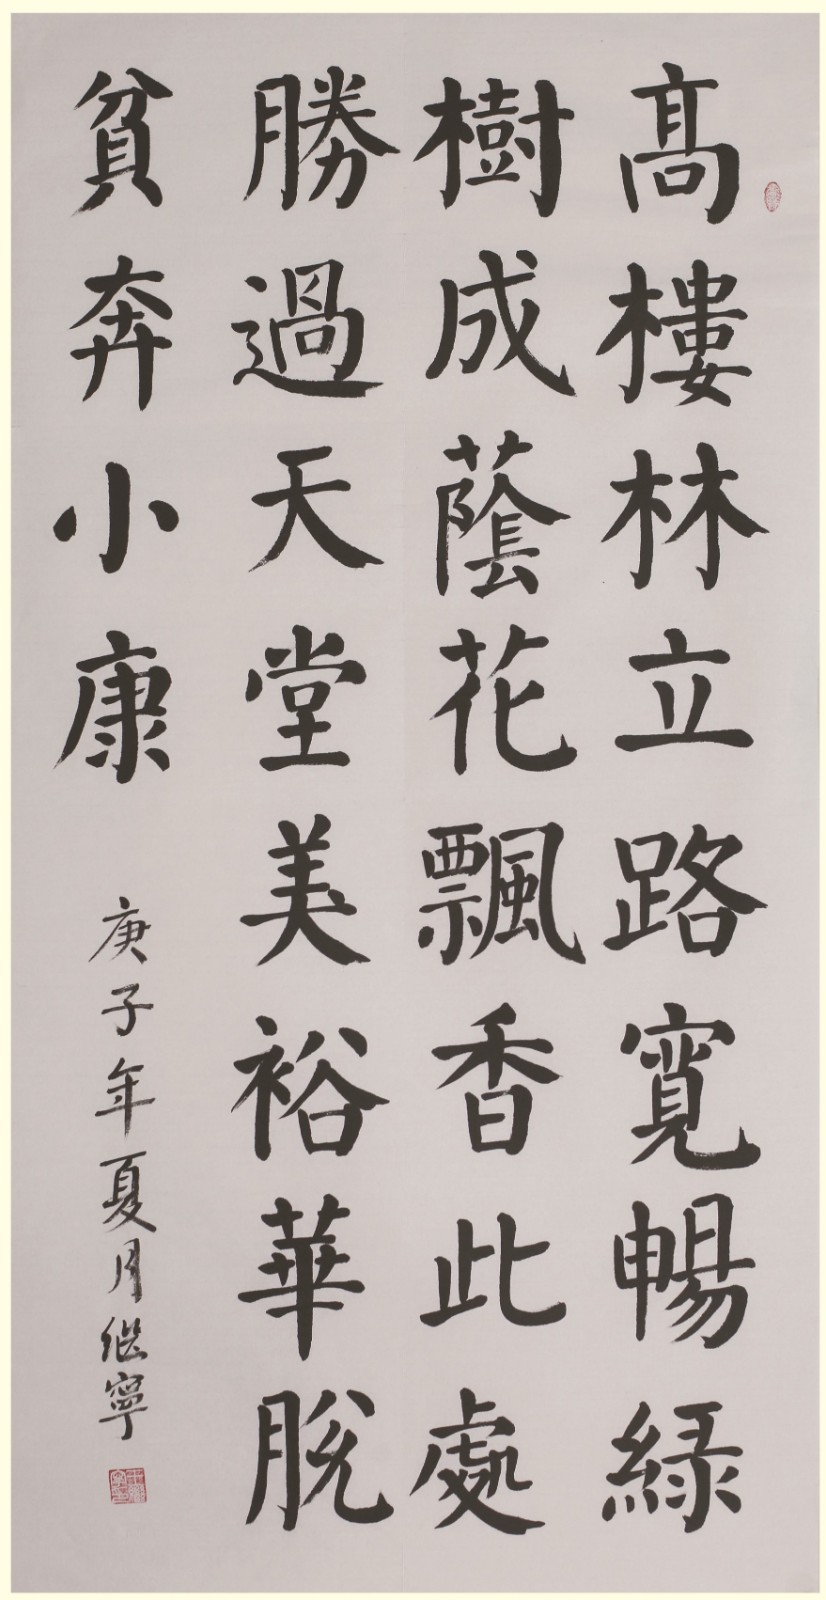 高樓林立路寬暢綠
樹成蔭花飄香此處
勝過天堂美裕華脫
貧奔小康
庚子年夏月继寧